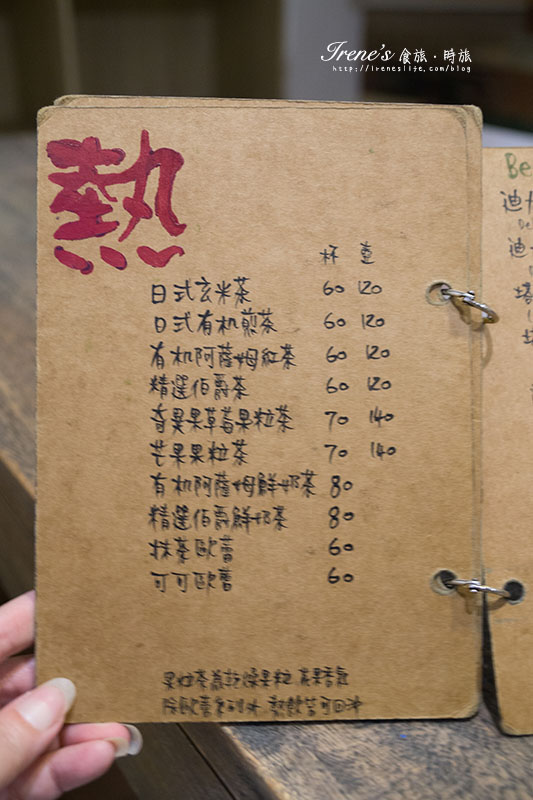 Irene's 食旅・時旅
http://ireneslife.com/blog
熱
杯 壺
日式玄米茶 60 120
日式有机煎茶 60 120
有机阿薩姆紅茶 60 120
精選伯爵茶 60 120
奇異果草莓果粒茶 70 140
芒果果粒茶 70 140
有机阿薩姆鮮奶茶 80
精選伯爵鮮奶茶 80
抹茶歐蕾 60
可可歐蕾 60
果粒茶為乾燥果粒 花果香氣
除歐蕾系列外 熱飲皆可回沖
Be
迪
迪
塔